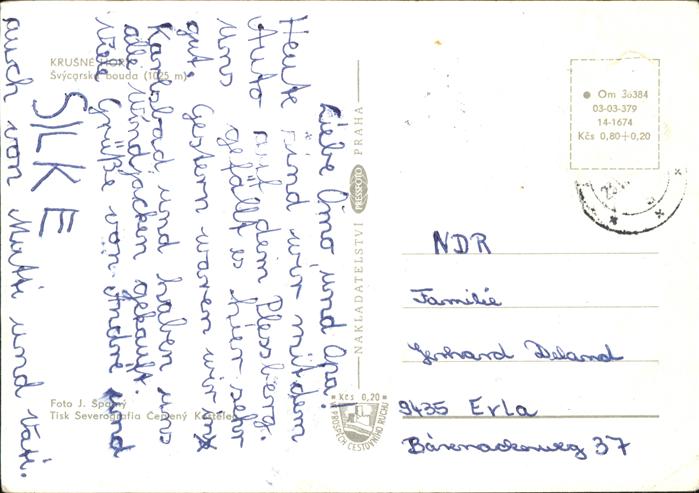 KRUŠNÉ HORY
Švýcarská bouda (1025 m)
Liebe Oma und Opa!
Heute sind wir mit dem
Auto auf dem Plessberg.
Uns gefällt es hier sehr
gut. Gestern waren wir in
Karlsbad und haben uns
alle Windjacken gekauft.
Viele Grüße von Andre und
SILKE
auch von Mutti und Vati.
Foto J. Špatný
Tisk Severografia Červený Kostelec
NAKLADATELSTVÍ PRESSFOTO PRAHA
Kčs 0,20
VE PROSPĚCH CESTOVNÍHO RUCHU
Om 30384
03-03-379
14-1674
Kčs 0,80+0,20
NDR
Familie
Gerhard Deland
9435 Erla
37